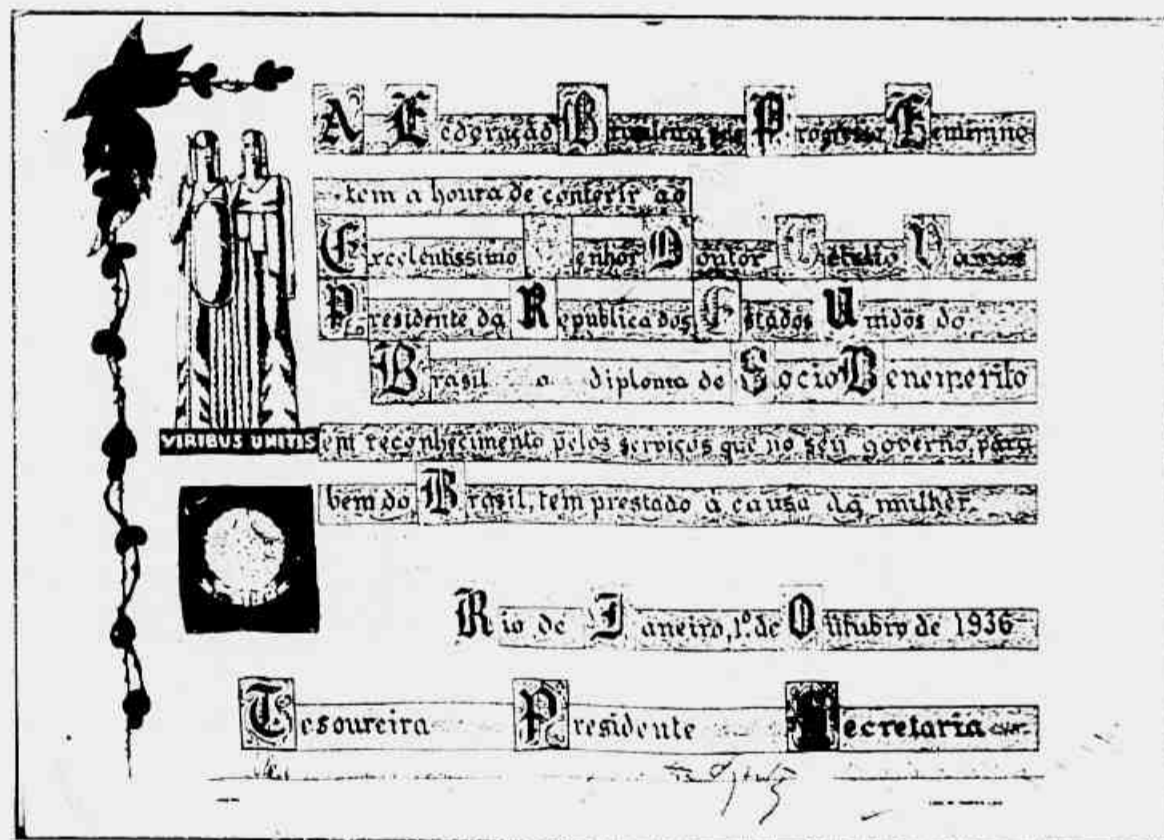 A Federação Brasileira pelo Progresso Feminino
tem a honra de conferir ao
Excelentissimo Senhor Doutor Getulio Vargas
Presidente da Republica dos Estados Unidos do
Brasil o diploma de Socio Benemerito
VIRIBUS UNITIS
em reconhecimento pelos serviços que no seu governo, para
bem do Brasil, tem prestado á causa da mulher.
Rio de Janeiro, 1º de Outubro de 1936
Tesoureira Presidente Secretaria